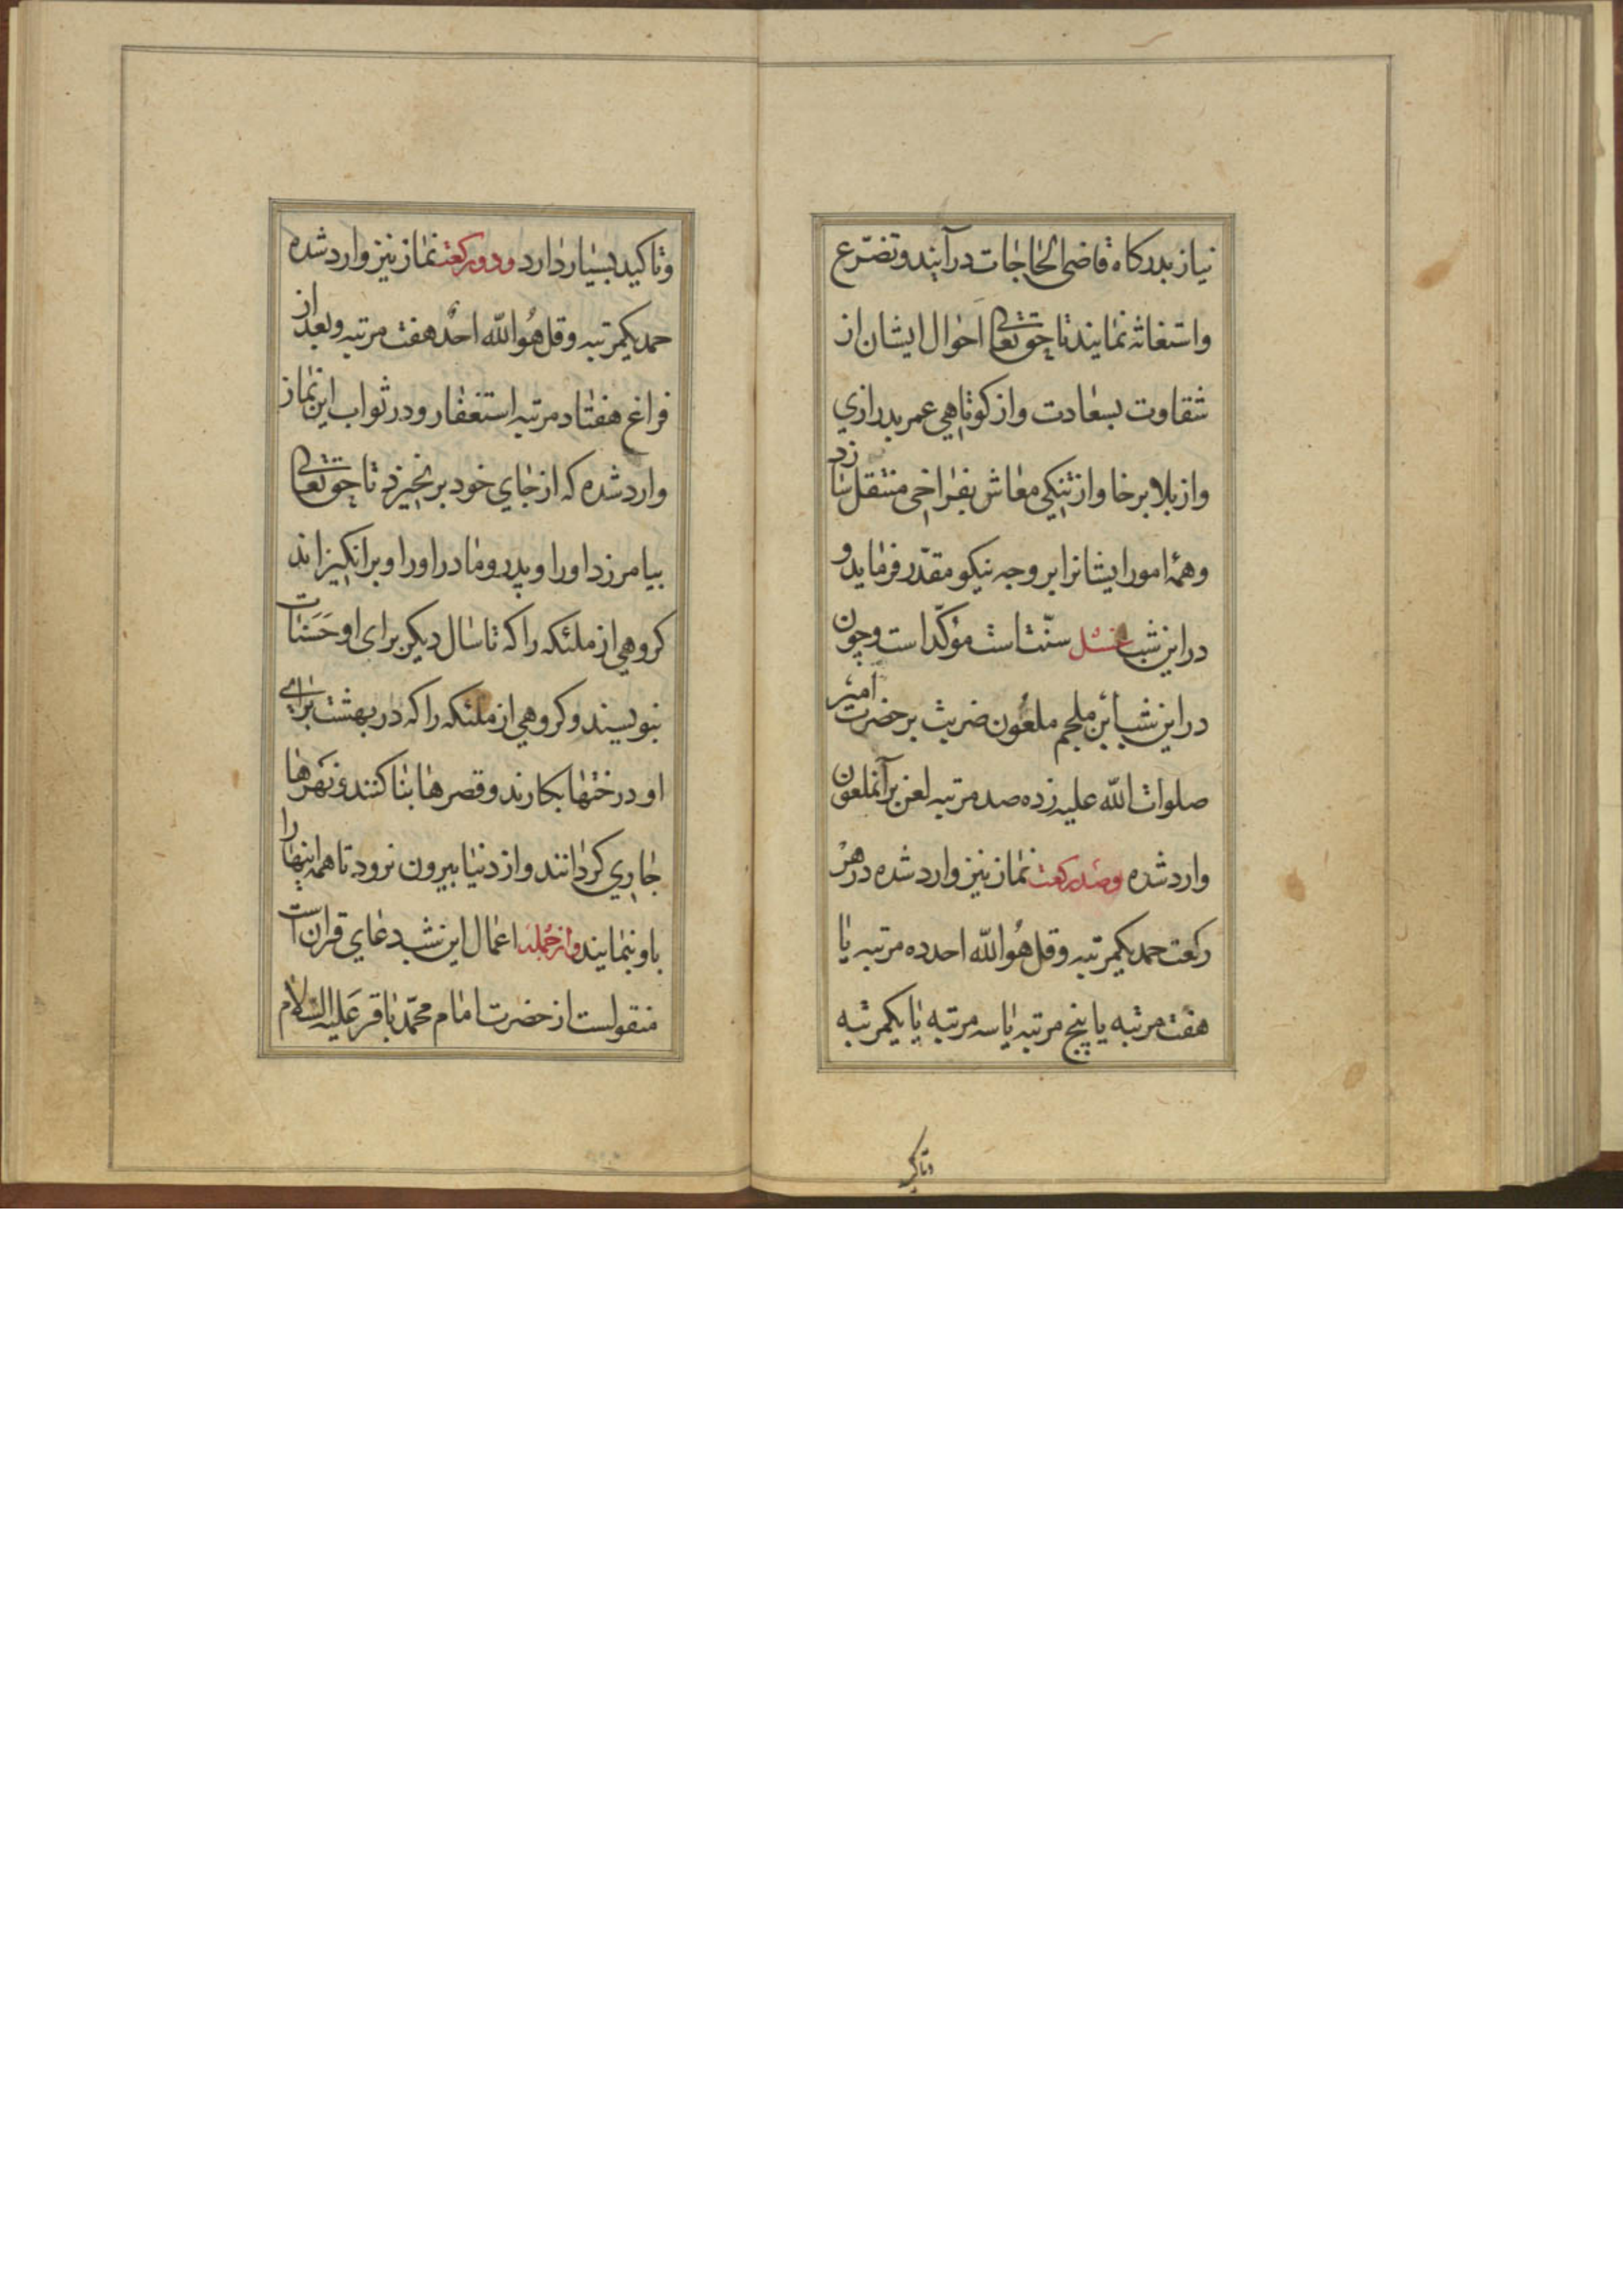 نیاز بدرکاه قاضی الحاجات درآیند و تضرّع
واستغاثه نمایند تا حق تعالی احوال ایشان از
شقاوت بسعادت و از کوتاهی عمر بدرازی
و از بلا برخا و از تنکی معاش بفراخی منتقل سازد
و همهٔ امور ایشانرا بر وجه نیکو مقدّر فرماید و
در این شب غسل سنّت است مؤکّد است و چون
در این شب ابن ملجم ملعون ضربت بر حضرت امیر
صلوات الله علیه زده صد مرتبه لعن بر آنملعون
وارد شده وصد رکعت نماز نیز وارد شده در هر
رکعت حمد یکمرتبه و قل هُو الله احد ده مرتبه یا
هفت مرتبه یا پنج مرتبه یا سه مرتبه یا یکمرتبه
وتاکید
وتاکید بسیار دارد ودو رکعت نماز نیز وارد شده
حمد یکمرتبه و قل هُو الله احدٌ هفت مرتبه و بعد از
فراغ هفتاد مرتبه استغفار و در ثواب این نماز
وارد شده که از جای خود برنخیزد تا حق تعالی
بیامرزد او را و پدر و مادر او را و برانکیزاند
کروهی از ملئکه را که تا سال دیکر برای او حَسَنات
بنویسند و کروهی از ملئکه را که در بهشت برای
او درختها بکارند و قصرها بنا کنند و نهرها
جاری کردانند و از دنیا بیرون نرود تا همه اینها را
باو بنمایند واز جمله اعمال این شب دعای قران است
منقولست از حضرت امام محمّد باقر عَلیه السّلام